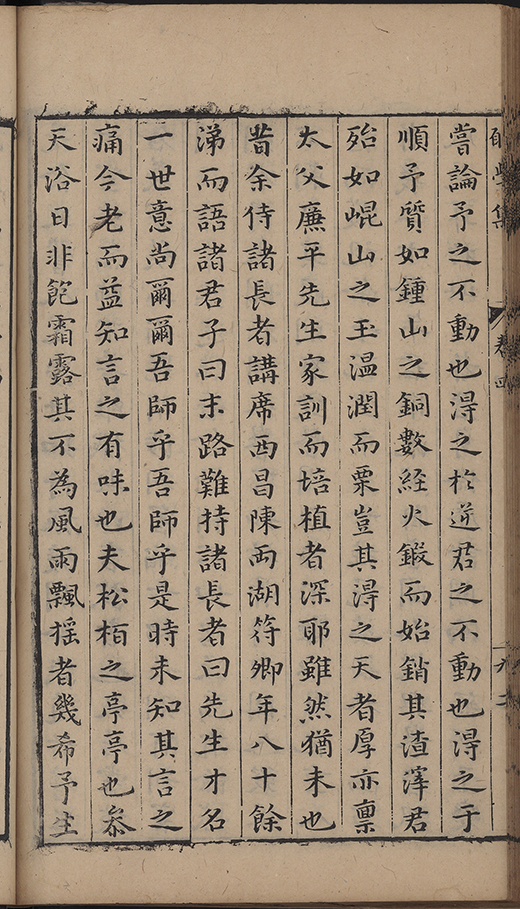 學集 卷四
嘗論予之不動也得之於逆君之不動也得之于
順予質如鍾山之銅數經火鍛而始銷其渣滓君
殆如崐山之玉温潤而栗豈其淂之天者厚亦禀
太父㢘平先生家訓而培植者深耶雖然猶未也
昔余侍諸長者講席西昌陳两湖符卿年八十餘
涕而語諸君子曰末路難持諸長者曰先生才名
一世意尚爾爾吾師乎吾師乎是時未知其言之
痛今老而益知言之有味也夫松栢之亭亭也叅
天浴日非飽霜露其不為風雨飄揺者幾希予生